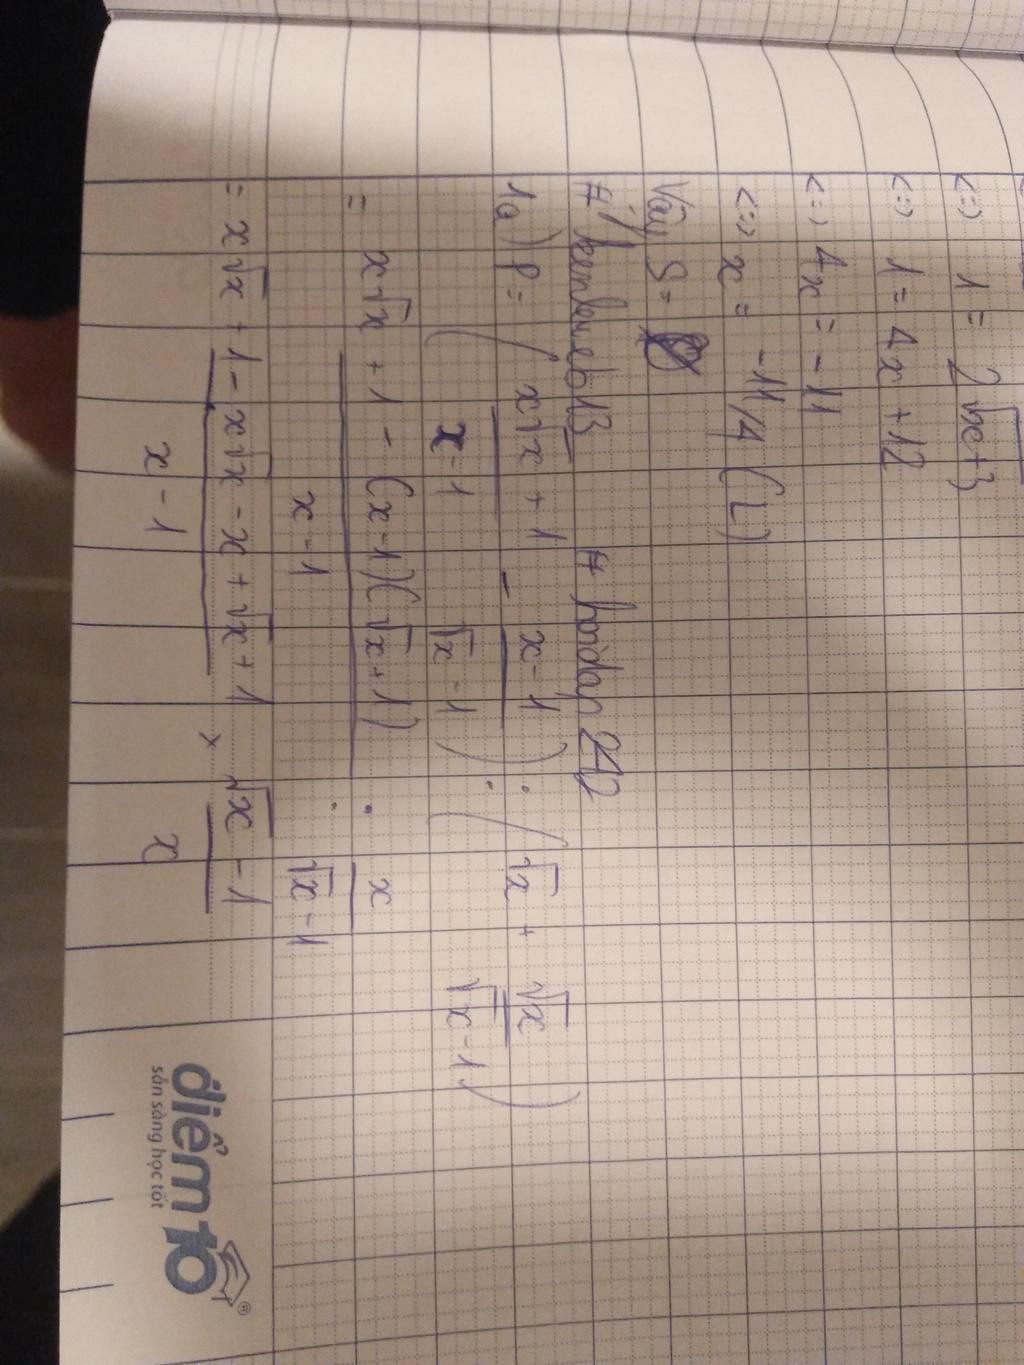 <=> 1 = 2√x+3
<=> 1 = 4x + 12
<=> 4x = -11
<=> x = -11/4 (L)
Vậy S =
# hoidap 242
1a) P = ( x√x + 1 / x - 1 - x - 1 / √x - 1 ) : ( √x + √x / √x - 1 )
= x√x + 1 - (x - 1)(√x + 1) / x - 1 : x / √x - 1
= x√x + 1 - x√x - x + √x + 1 / x - 1 × √x - 1 / x
điểm 10 ®
sẵn sàng học tốt